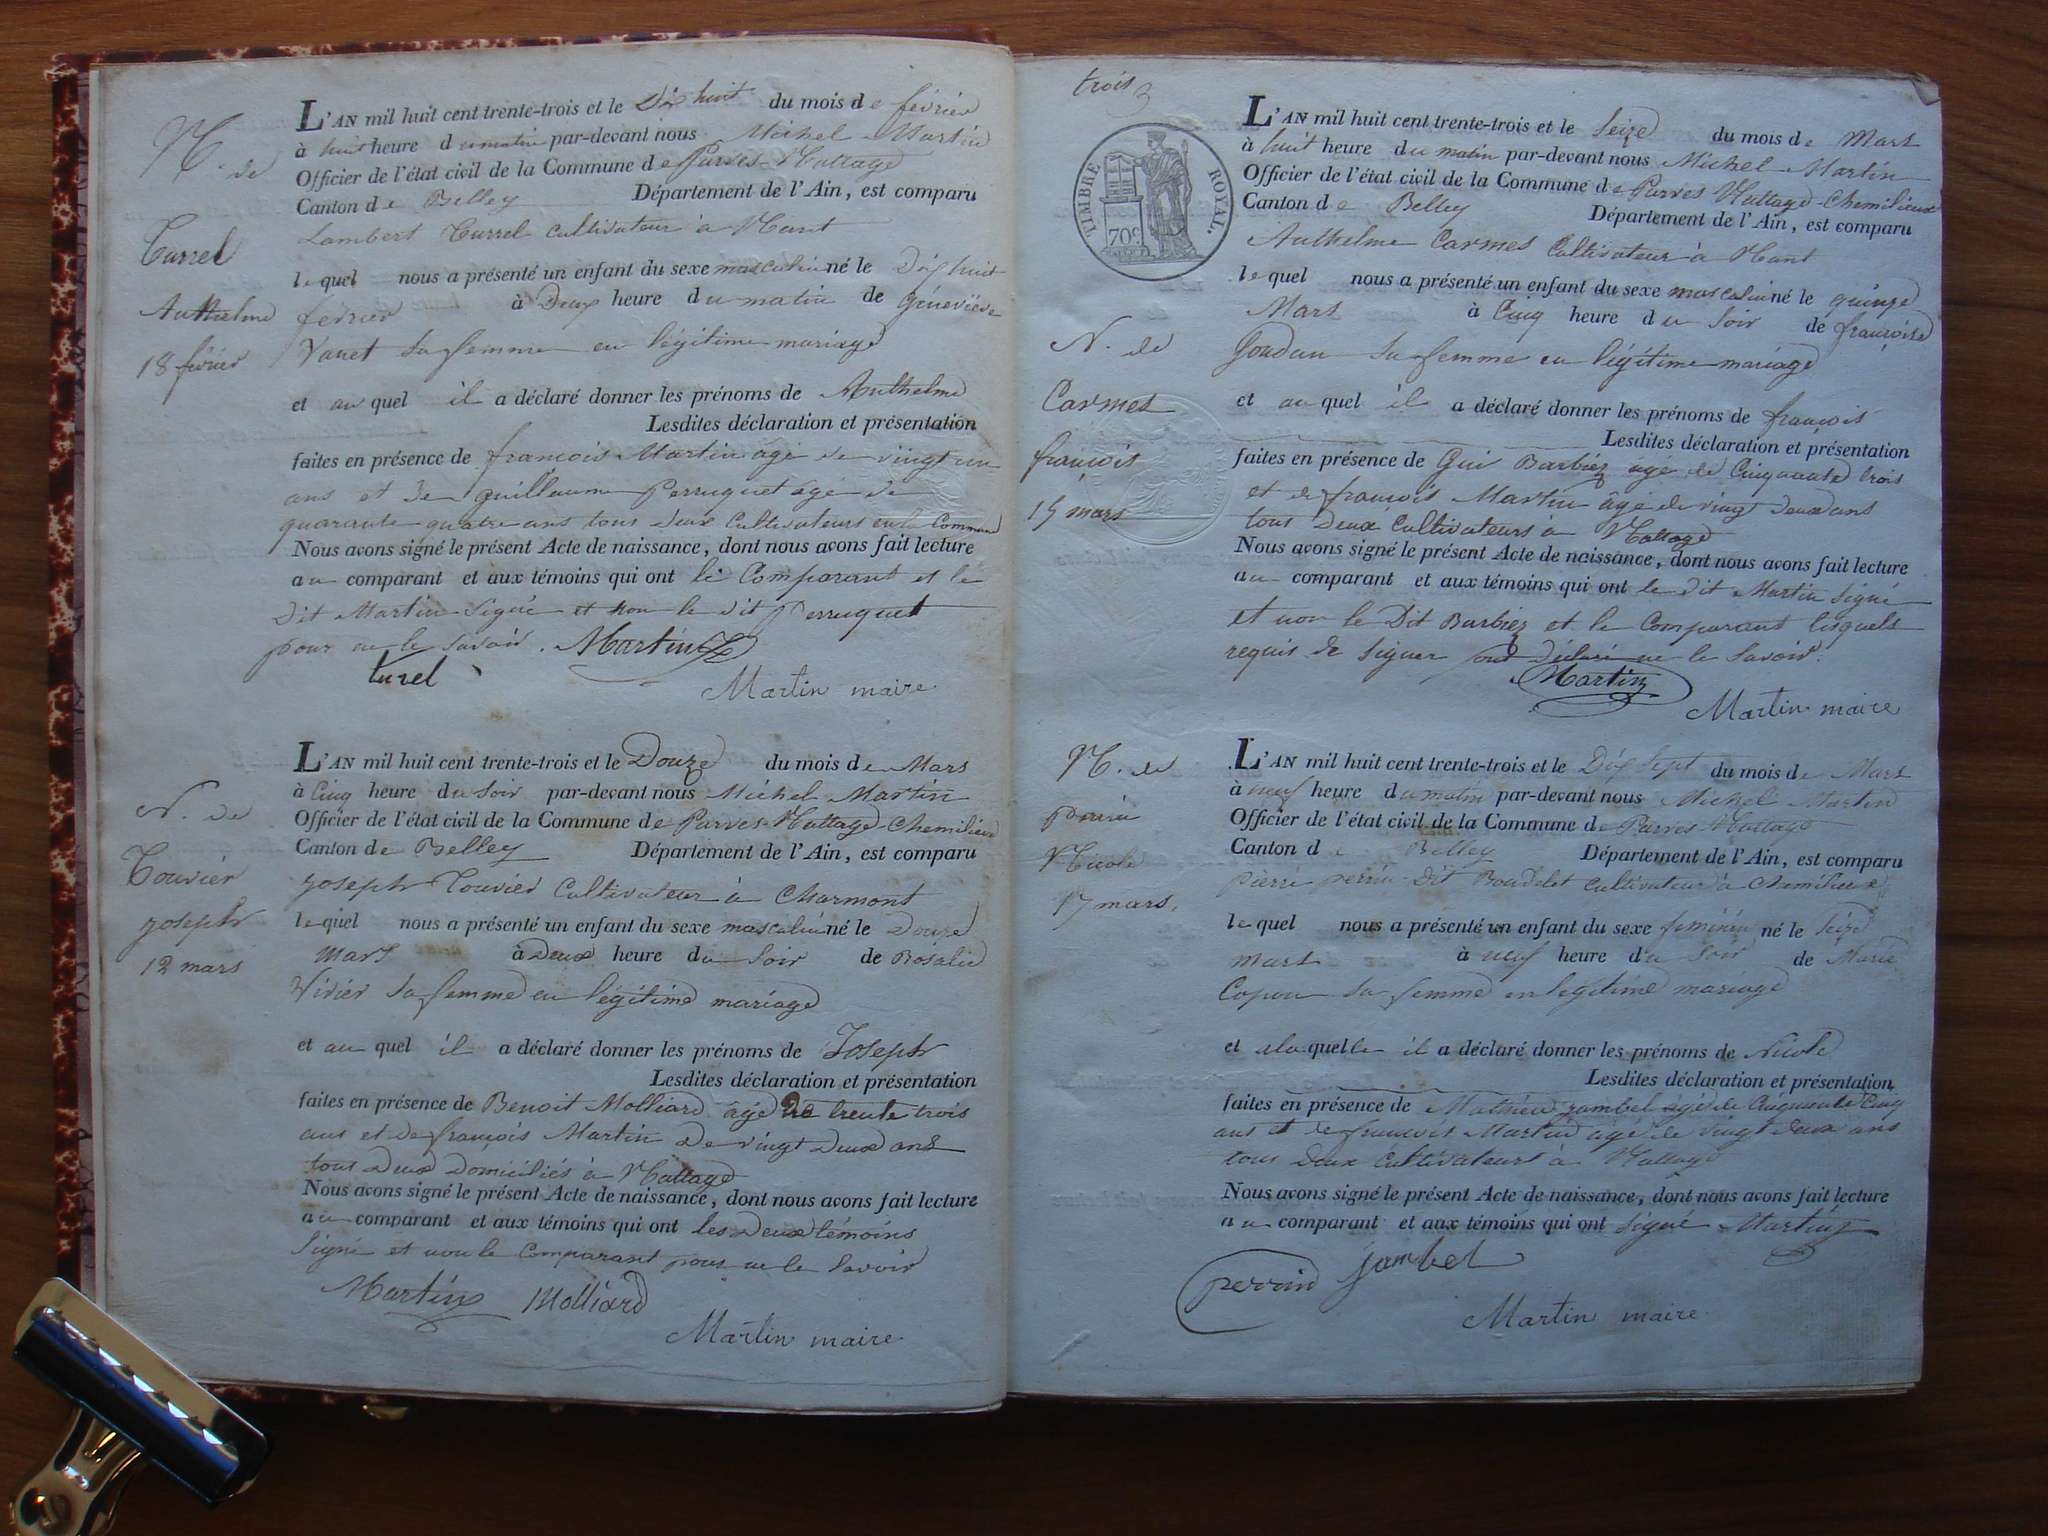 N. de
Turrel
Authelme
18 février
L'AN mil huit cent trente-trois et le Dix huit du mois de février
à huit heure du matin par-devant nous Michel Martin
Officier de l'état civil de la Commune de Parves Nattage
Canton de Belley Département de l'Ain, est comparu
Lambert Turrel cultivateur à Nant
lequel nous a présenté un enfant du sexe masculin né le Dix huit
février à Deux heure du matin de Géneviève
sa femme en légitime mariage
et au quel il a déclaré donner les prénoms de Anthelme
Lesdites déclaration et présentation
faites en présence de françois Martin agé de vingt un
ans et de Guillaume Perruquet agé de
quarante quatre ans tous deux Cultivateurs en la Commune
Nous avons signé le présent Acte de naissance, dont nous avons fait lecture
au comparant et aux témoins qui ont le Comparant et le
Dit Martin Signé et non le dit Perruquet
pour ne le savoir. Martin
turel
Martin maire
N. de
Touvier
joseph
12 mars
L'AN mil huit cent trente-trois et le Douze du mois de Mars
à Cinq heure du Soir par-devant nous Michel Martin
Officier de l'état civil de la Commune de Parves Nattage Chemilieux
Canton de Belley Département de l'Ain, est comparu
joseph Touvier Cultivateur à Charmont
lequel nous a présenté un enfant du sexe masculin né le Douze
Mars à Deux heure du Soir de Rosalie
Vivier Sa femme en légitime mariage
et au quel il a déclaré donner les prénoms de Joseph
Lesdites déclaration et présentation
faites en présence de Benoit Molliard agé de trente trois
ans et de françois Martin De vingt Deux ans
tous Deux Domiciliés à Nattage
Nous avons signé le présent Acte de naissance, dont nous avons fait lecture
au comparant et aux témoins qui ont les Deux témoins
Signé et non le Comparant pour ne le Savoir
Martin Molliard
Martin maire
trois
3
TIMBRE ROYAL.
70c
N. de
Carmes
françois
15 mars
L'AN mil huit cent trente-trois et le Seize du mois de Mars
à huit heure du matin par-devant nous Michel Martin
Officier de l'état civil de la Commune de Parves Nattage Chemilieux
Canton de Belley Département de l'Ain, est comparu
Anthelme Carmes Cultivateur à Nant
lequel nous a présenté un enfant du sexe masculin né le quinze
Mars à Cinq heure du Soir de françoise
Goudan sa femme en légitime mariage
et au quel il a déclaré donner les prénoms de françois
Lesdites déclaration et présentation
faites en présence de Gui Barbiez agé de Cinquante trois
et de françois Martin âgé de vingt Deux ans
tous Deux Cultivateurs à Nattage
Nous avons signé le présent Acte de naissance, dont nous avons fait lecture
au comparant et aux témoins qui ont le dit Martin Signé
et non le Dit Barbiez et le Comparant lesquels
requis de Signer ont déclaré ne le Savoir.
Martin
Martin maire
N. de
perrin
Nicole
17 mars.
L'AN mil huit cent trente-trois et le Dix Sept du mois de Mars
à neuf heure du matin par-devant nous Michel Martin
Officier de l'état civil de la Commune de Parves Nattage
Canton de Belley Département de l'Ain, est comparu
pierre perrin Dit Boudelet Cultivateur à Chemilieux
lequel nous a présenté un enfant du sexe féminin né le Seize
mars à neuf heure du Soir de Marie
Copou Sa femme en légitime mariage
et alaquelle il a déclaré donner les prénoms de Nicole
Lesdites déclaration et présentation
faites en présence de Mathieu jambel agé de Cinquante Cinq
ans et de françois Martin âgé de vingt deux ans
tous Deux Cultivateurs à Nattage
Nous avons signé le présent Acte de naissance, dont nous avons fait lecture
au comparant et aux témoins qui ont Signé Martin
perrin jambel
Martin maire